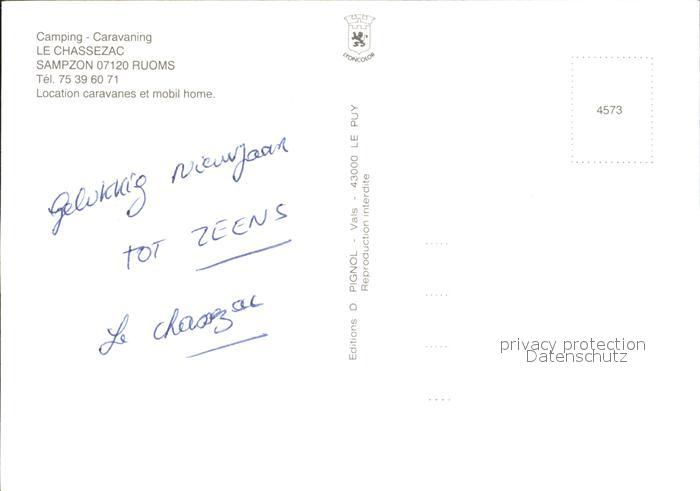 Camping - Caravaning
LE CHASSEZAC
SAMPZON 07120 RUOMS
Tél. 75 39 60 71
Location caravanes et mobil home.
LYONCOLOR
4573
Gelukkig Nieuwjaar
TOT ZEENS
Le chassezac
Editions D PIGNOL - Vals - 43000 LE PUY
Reproduction interdite
privacy protection
Datenschutz